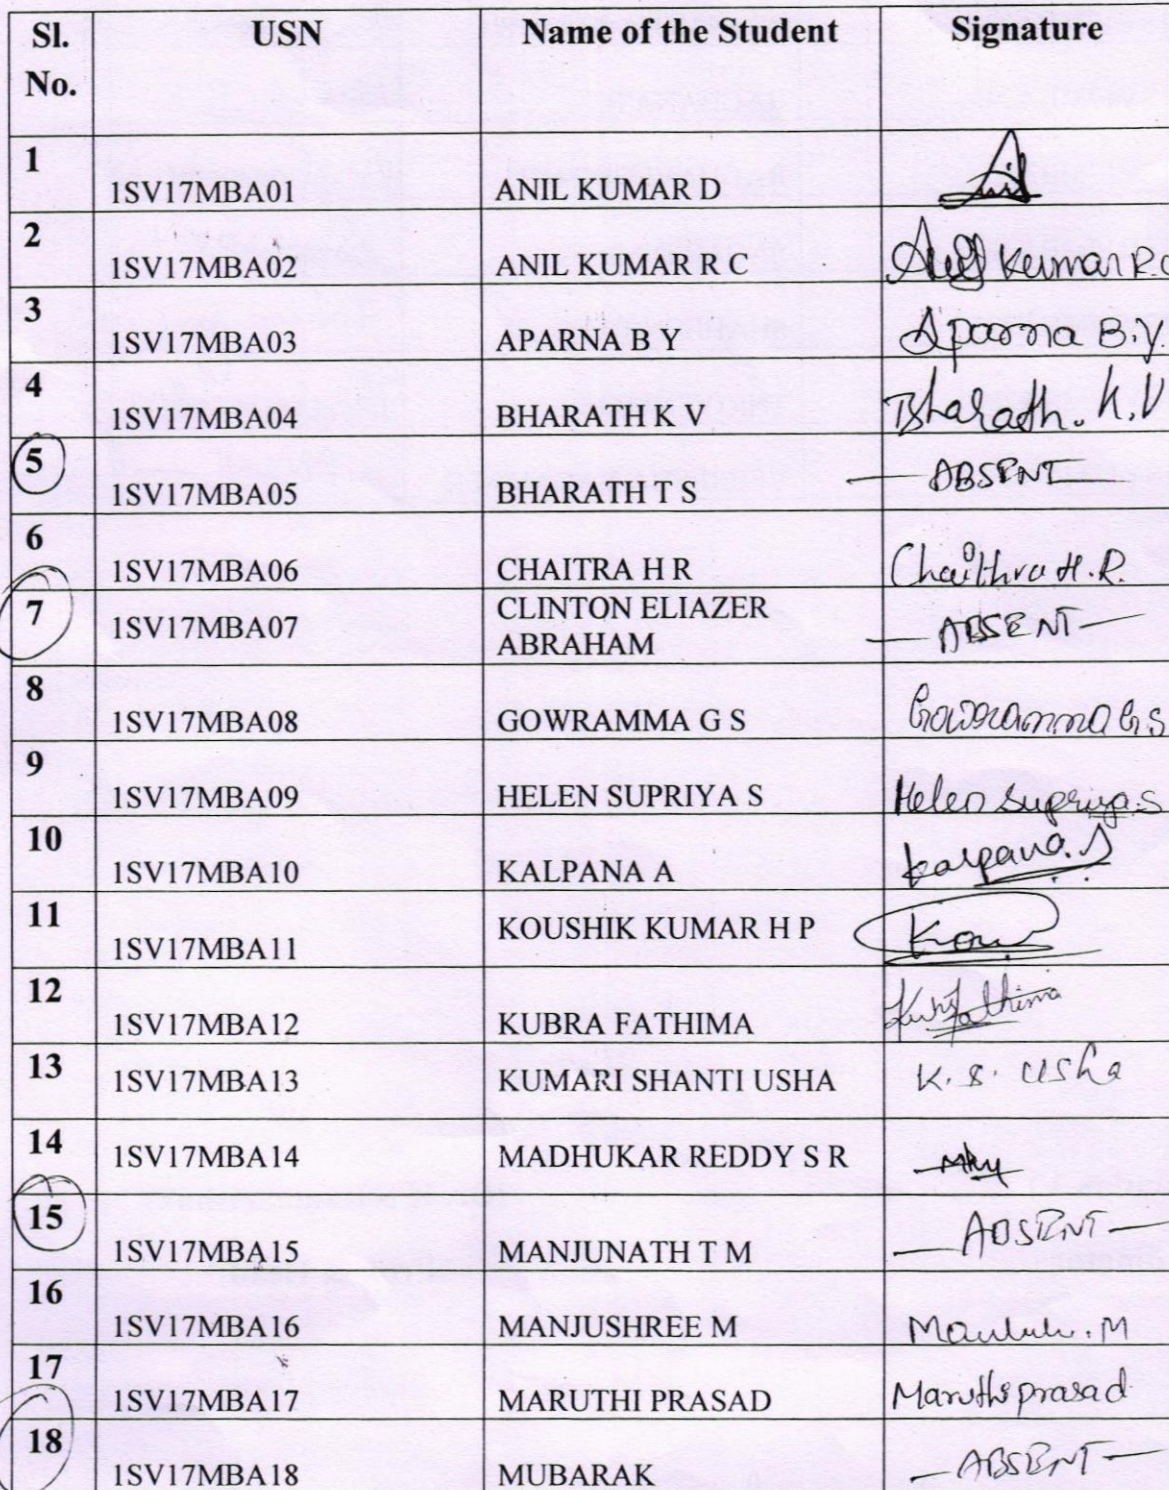 Sl. No. USN Name of the Student Signature
1 1SV17MBA01 ANIL KUMAR D
2 1SV17MBA02 ANIL KUMAR R C Anil Kumar R.C
3 1SV17MBA03 APARNA B Y Aparna B.Y.
4 1SV17MBA04 BHARATH K V Bharath. K.V
5 1SV17MBA05 BHARATH T S — ABSENT —
6 1SV17MBA06 CHAITRA H R Chaithra H.R.
7 1SV17MBA07 CLINTON ELIAZER ABRAHAM — ABSENT —
8 1SV17MBA08 GOWRAMMA G S Gowramma G.S
9 1SV17MBA09 HELEN SUPRIYA S Helen Supriya.S
10 1SV17MBA10 KALPANA A Kalpana.A
11 1SV17MBA11 KOUSHIK KUMAR H P
12 1SV17MBA12 KUBRA FATHIMA Fathima
13 1SV17MBA13 KUMARI SHANTI USHA K. S. Usha
14 1SV17MBA14 MADHUKAR REDDY S R
15 1SV17MBA15 MANJUNATH T M — ABSENT —
16 1SV17MBA16 MANJUSHREE M
17 1SV17MBA17 MARUTHI PRASAD Maruthi prasad
18 1SV17MBA18 MUBARAK — ABSENT —